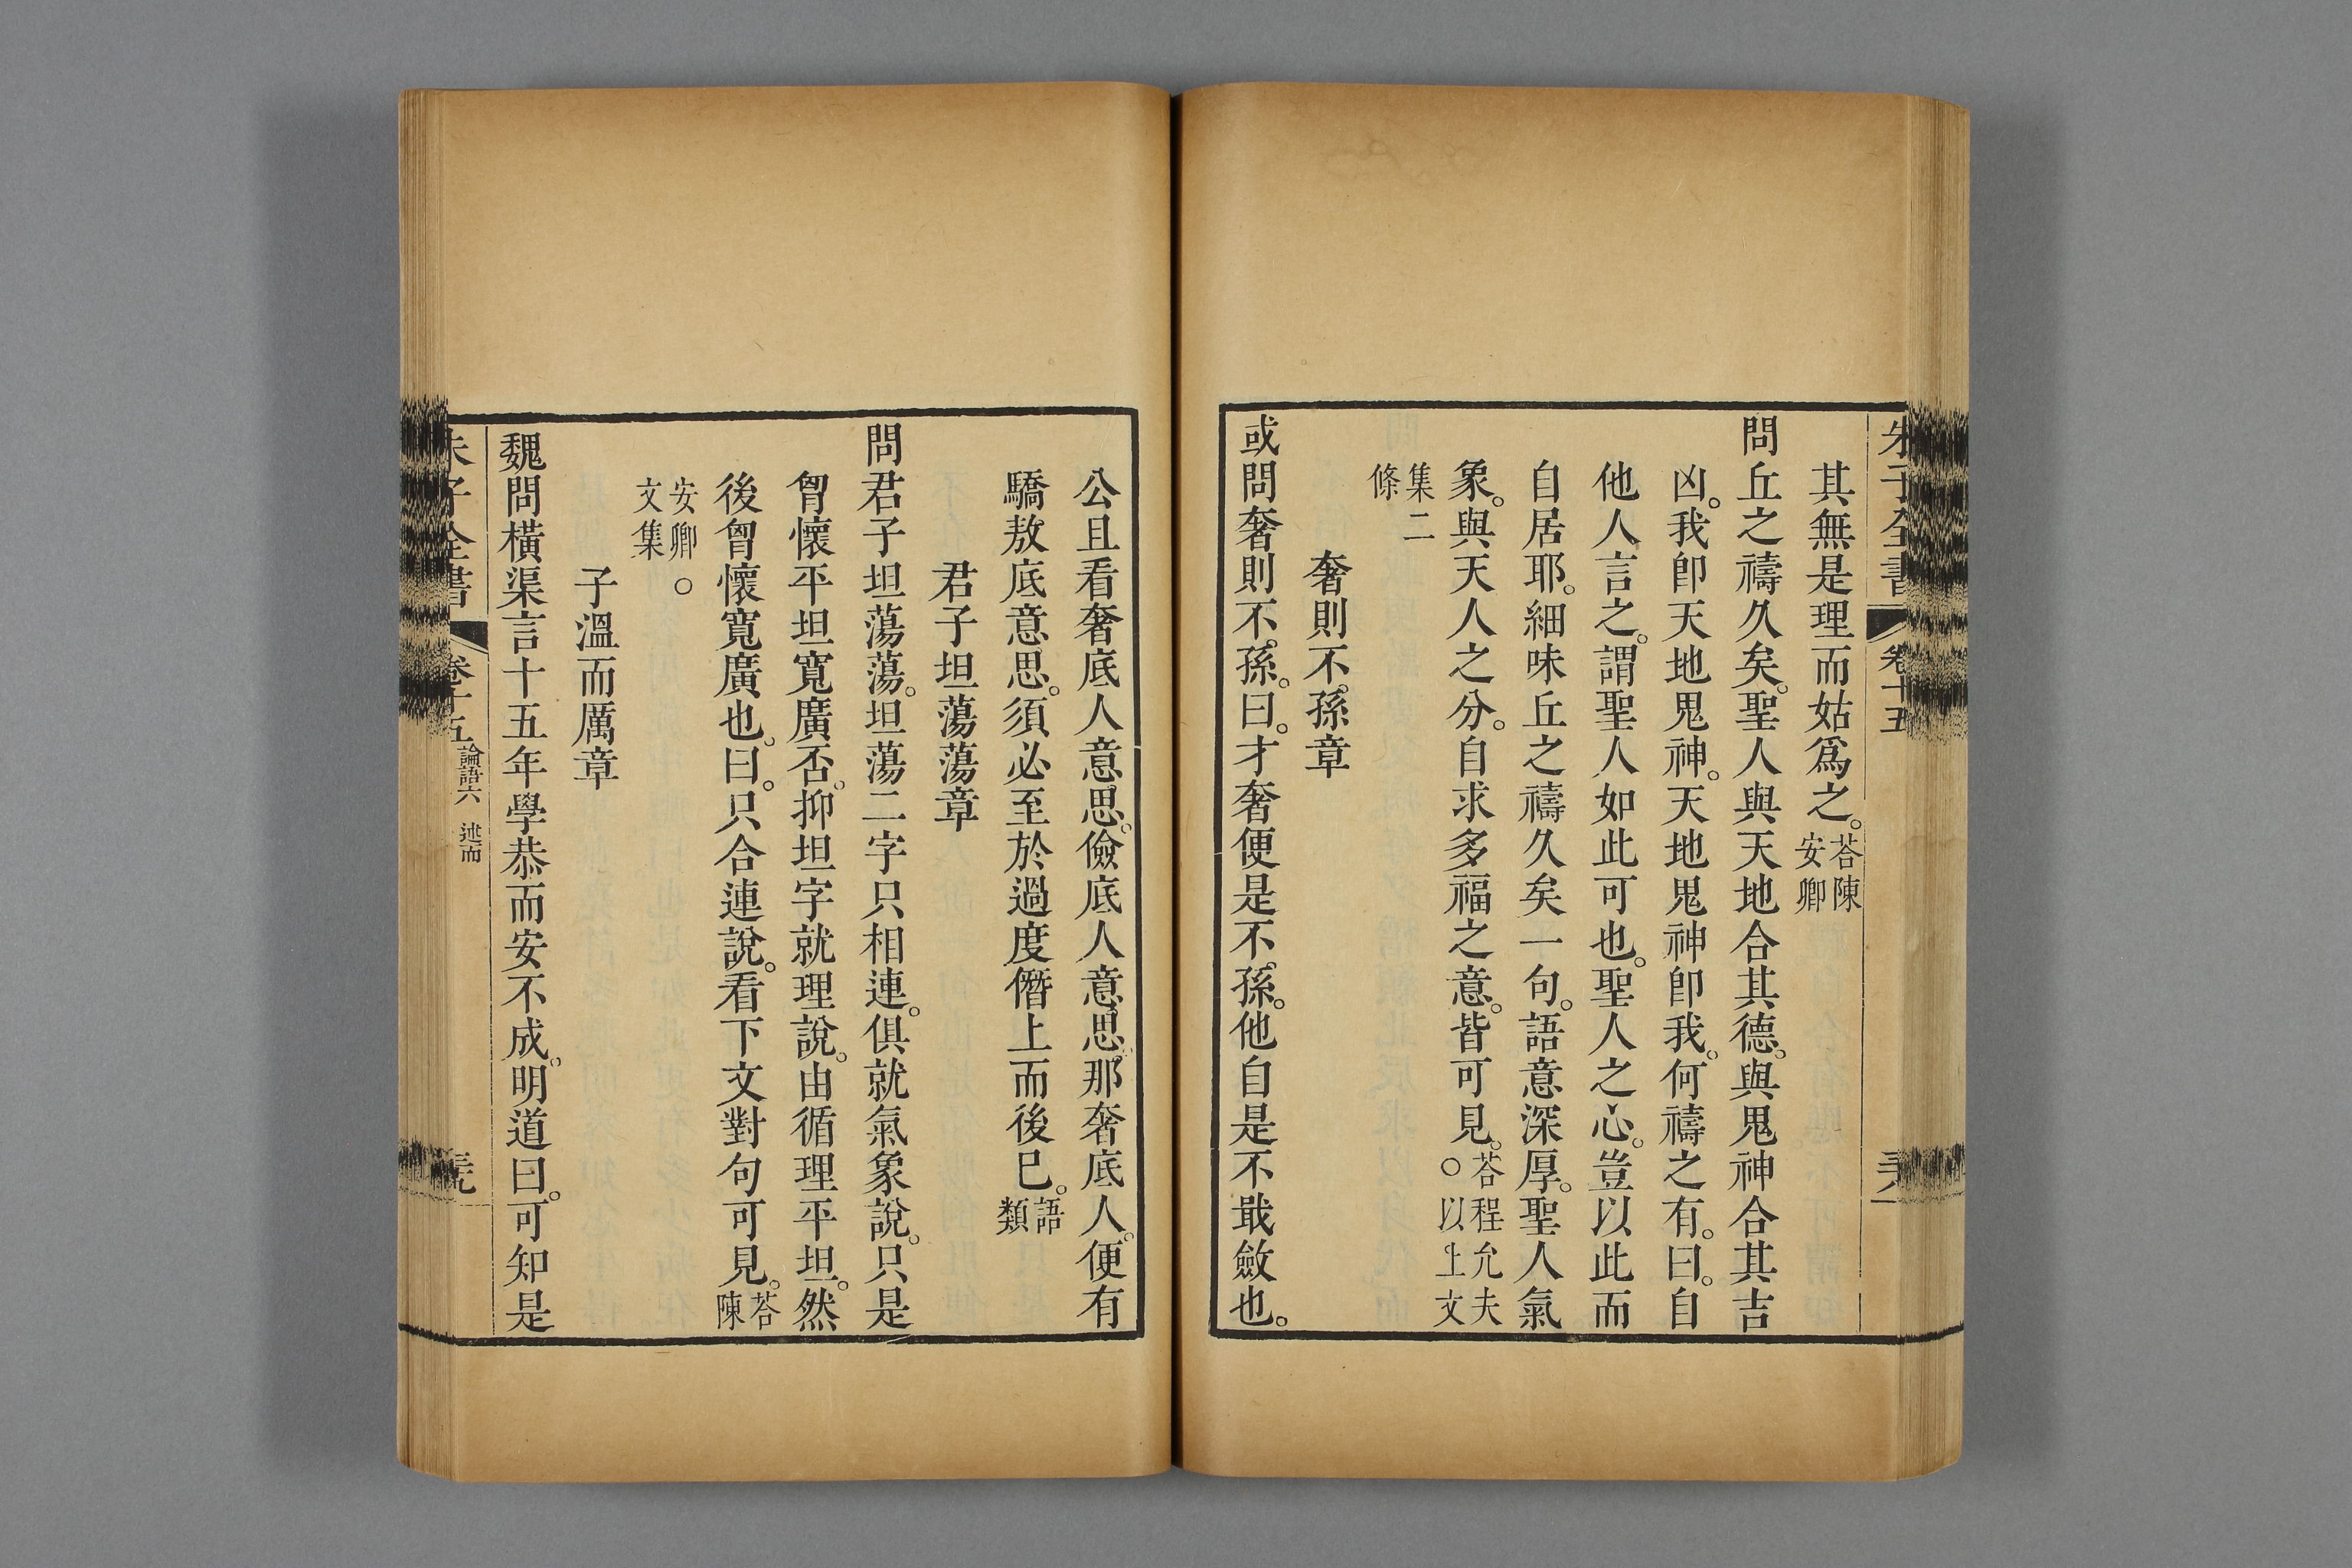 朱子全書 卷十五
其無是理而姑爲之。荅陳安卿
問丘之禱久矣。聖人與天地合其德。與鬼神合其吉
凶。我卽天地鬼神。天地鬼神卽我。何禱之有。曰。自
他人言之。謂聖人如此可也。聖人之心。豈以此而
自居耶。細味丘之禱久矣一句。語意深厚。聖人氣
象。與天人之分。自求多福之意。皆可見。荅程允夫○以上文
集二條
奢則不孫章
或問奢則不孫。曰。才奢便是不孫。他自是不戢斂也。
公且看奢底人意思。儉底人意思。那奢底人。便有
驕敖底意思。須必至於過度僭上而後已。語類
君子坦蕩蕩章
問君子坦蕩蕩。坦蕩二字只相連。俱就氣象說。只是
胷懷平坦寬廣否。抑坦字就理說。由循理平坦。然
後胷懷寬廣也。曰。只合連說。看下文對句可見。荅陳
安卿○文集
子溫而厲章
魏問橫渠言十五年學恭而安不成。明道曰。可知是
朱子全書 卷十五 論語六 述而